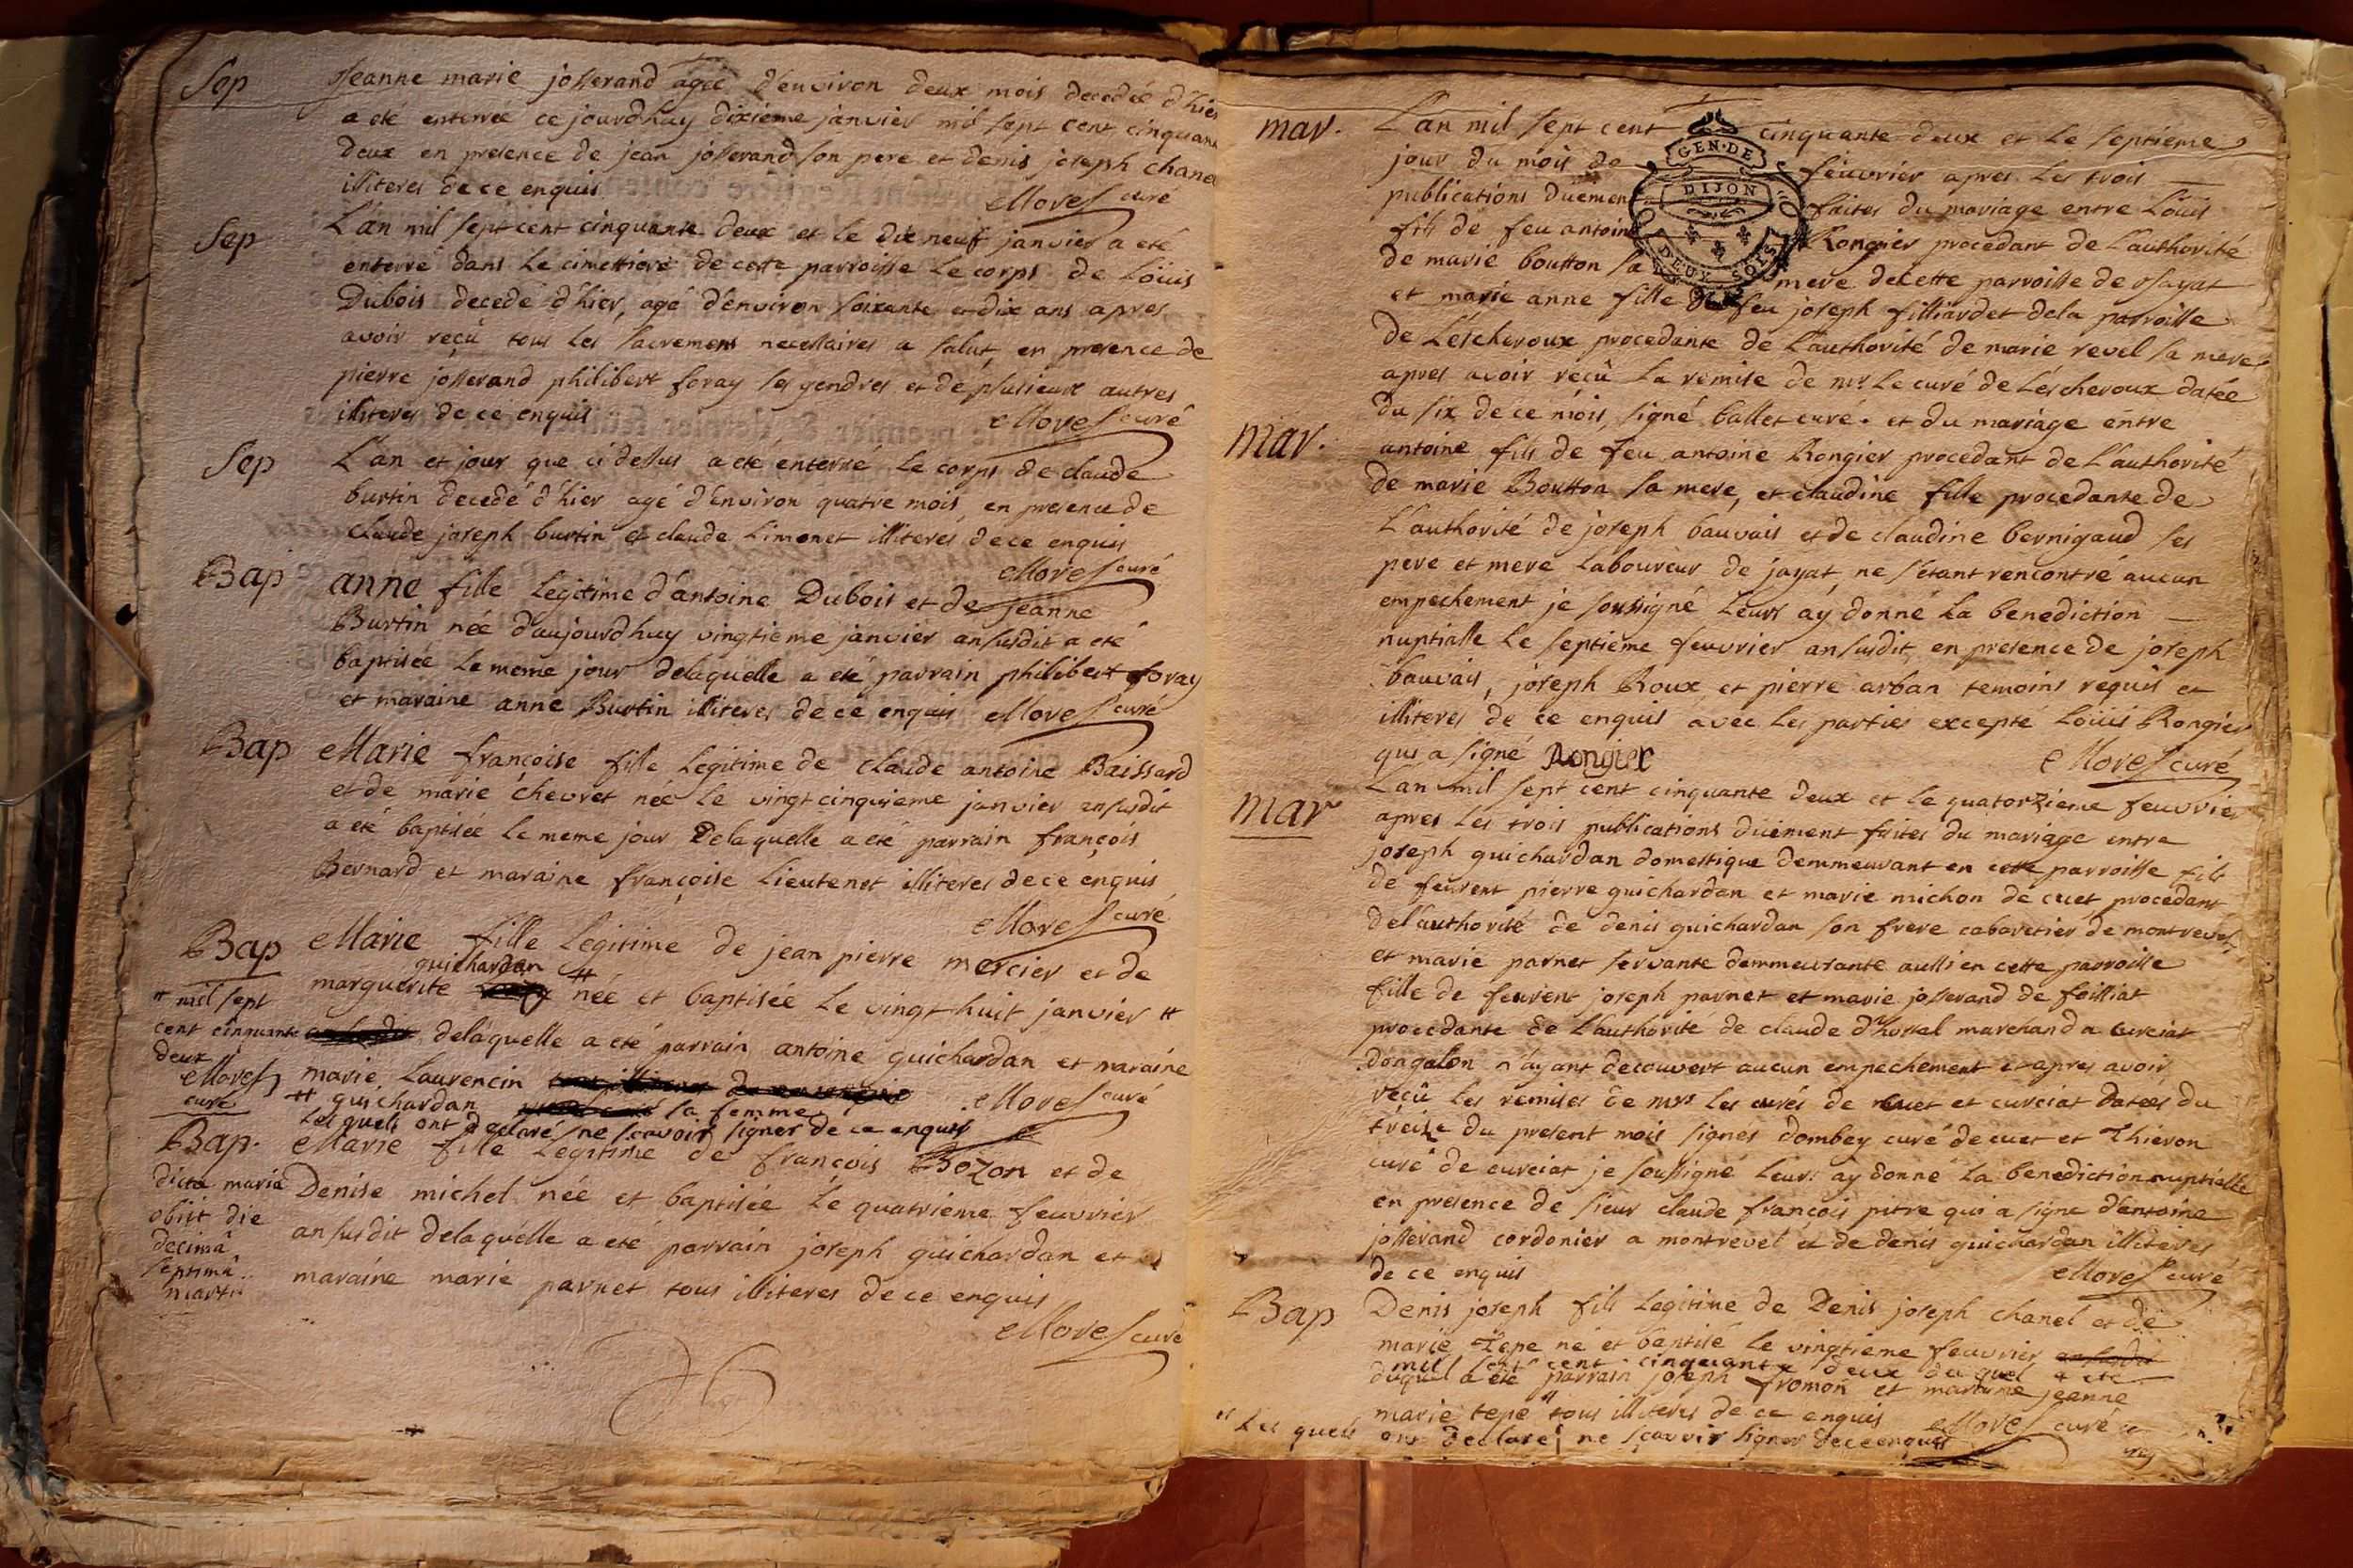 Sep
Jeanne marie josserand agée d'environ deux mois decedée d'hier
a eté enterrée ce jourdhuy dixiéme janvier mil sept cent cinquan
deux en presence de jean josserand son pere et denis joseph chanel
illiteres de ce enquis Morel curé
Sep
L'an mil sept cent cinquante deux et le dix neuf janvier a eté
enterré dans le cimettiere de cette parroisse le corps de Loüis
Dubois decedé d'hier, agé d'environ soixante et dix ans apres
avoir reçû tous les sacremens necessaires a salut en presence de
pierre josserand philibert foray ses gendres et de plusieurs autres
illiteres de ce enquis Morel curé
Sep
L'an et jour que ci dessus a eté enterré le corps de claude
burtin decedé d'hier agé d'environ quatre mois en presence de
claude joseph burtin et claude Limonet illiteres de ce enquis
Morel curé
Bap
anne fille Legitime d'antoine Dubois et de jeanne
Burtin née d'aujourdhuy vingtieme janvier an susdit a eté
baptisée le meme jour delaquelle a eté parrain philibert foray
et maraine anne Burtin illiteres de ce enquis Morel curé
Bap
Marie françoise fille Legitime de claude antoine Baissard
et de marie chevret née le vingt cinquieme janvier an susdit
a eté baptisée le meme jour delaquelle a eté parrain françois
Bernard et maraine françoise Lieutenet illiteres de ce enquis
Morel curé
Bap
Marie fille Legitime de jean pierre mercier et de
guichardan
marguerite née et baptisée le vingt huit janvier
mil sept
cent cinquante delaquelle a eté parrain antoine guichardan et maraine
deux
Morel
curé
marie Laurencin Morel curé
guichardan sa femme
Lesquels ont declaré ne scavoir signer de ce enquis
Bap.
Marie fille Legitime de françois Bozon et de
dicta maria
obiit die
decimâ
septimâ
martii
Denise michel née et baptisée le quatriéme feuvrier
an susdit delaquelle a eté parrain joseph guichardan et
maraine marie parnet tous illiteres de ce enquis
Morel curé
mar.
L'an mil sept cent cinquante deux et le septieme
jour du mois de feuvrier apres les trois
publications duement faites du mariage entre Loüis
fils de feu antoine Rongier procedant de l'authorité
de marie boutton sa mere de cette parroisse de
et marie anne fille de feu joseph filliardet dela parroisse
de Léscheroux procedante de l'authorité de marie revel sa mere
apres avoir reçû la remise de mr le curé de Léscheroux datée
du six de ce mois, signé ballet curé. et du mariage entre
mar.
antoine fils de feu antoine Rongier procedant de l'authorité
de marie Boutton sa mere, et claudine fille procedante de
L'authorité de joseph bauvais et de claudine bernigaud ses
pere et mere Laboureur de jayat, ne s'etant rencontré aucun
empechement je soussigné leurs ay donné la benediction
nuptialle le septiéme feuvrier an susdit en presence de joseph
bauvais, joseph Roux et pierre arban temoins requis et
illiteres de ce enquis avec les parties excepté Loüis Rongier
qui a signé Rongier Morel curé
mar
L'an mil sept cent cinquante deux et le quatorziéme feuvrier
apres les trois publications düement faites du mariage entre
joseph guichardan domestique demmeurant en cette parroisse fils
de feurent pierre guichardan et marie michon de cuet procedant
del'authorité de denis guichardan son frere cabaretier de montrevel
et marie parnet servante demmeurante aussi en cette parroisse
fille de feurent joseph parnet et marie josserand de foilliat
procedante de l'authorité de claude d'hostal marchand a curciat
dongalon n'ayant decouvert aucun empechement et apres avoir
reçû les remises de mrs les curés de cuet et curciat datées du
tréize du present mois signés dombey curé de cuet et Thiévon
curé de curciat je soussigné leurs ay donné la benediction nuptialle
en presence de sieur claude françois pitre qui a signé d'antoine
josserand cordonier a montrevel et de denis guichardan illiteres
de ce enquis Morel curé
Bap
Denis joseph fils Legitime de Denis joseph chanel et de
marie Tepe né et baptisé le vingtieme feuvrier an susdit
mil sept cent cinquante deux duquel a eté
duquel a eté parrain joseph fromon et maraine jeanne
marie tepe tous illiteres de ce enquis Morel curé
Lesquels ont declaré ne sçavoir signer de ce enquis
GEN. DE
DIJON
DEUX SOLS